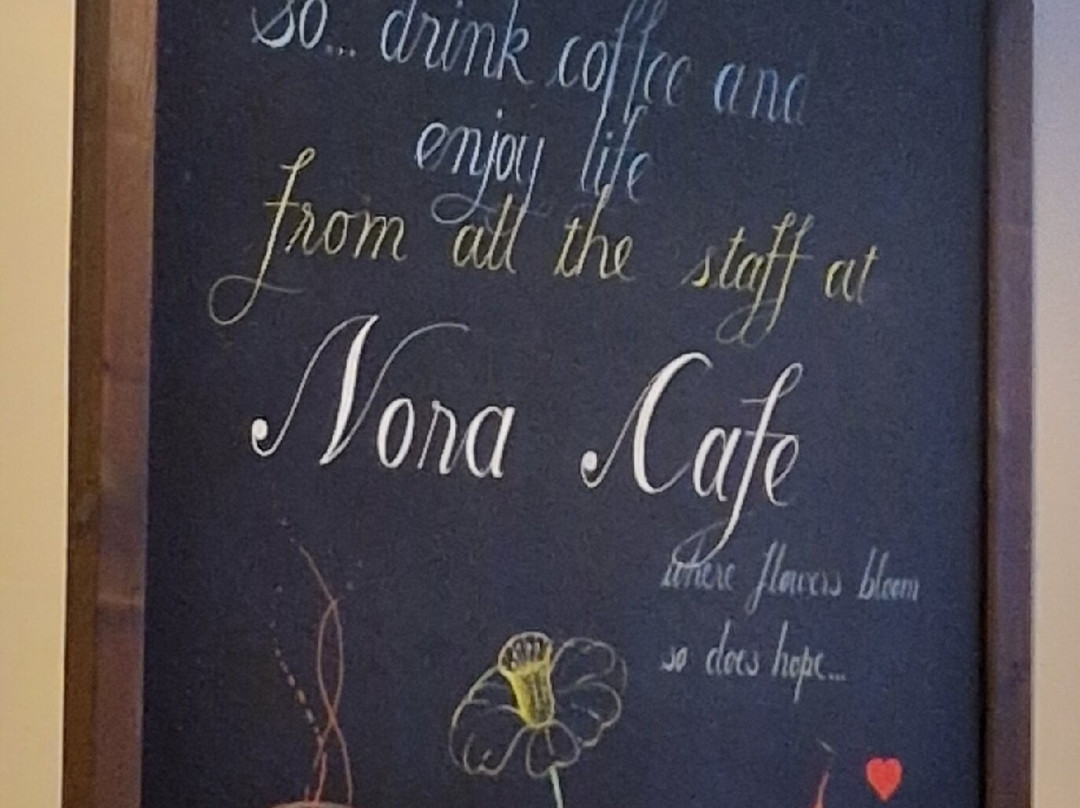 So... drink coffee and
enjoy life
from all the staff at
Nora Cafe
where flowers bloom
so does hope...